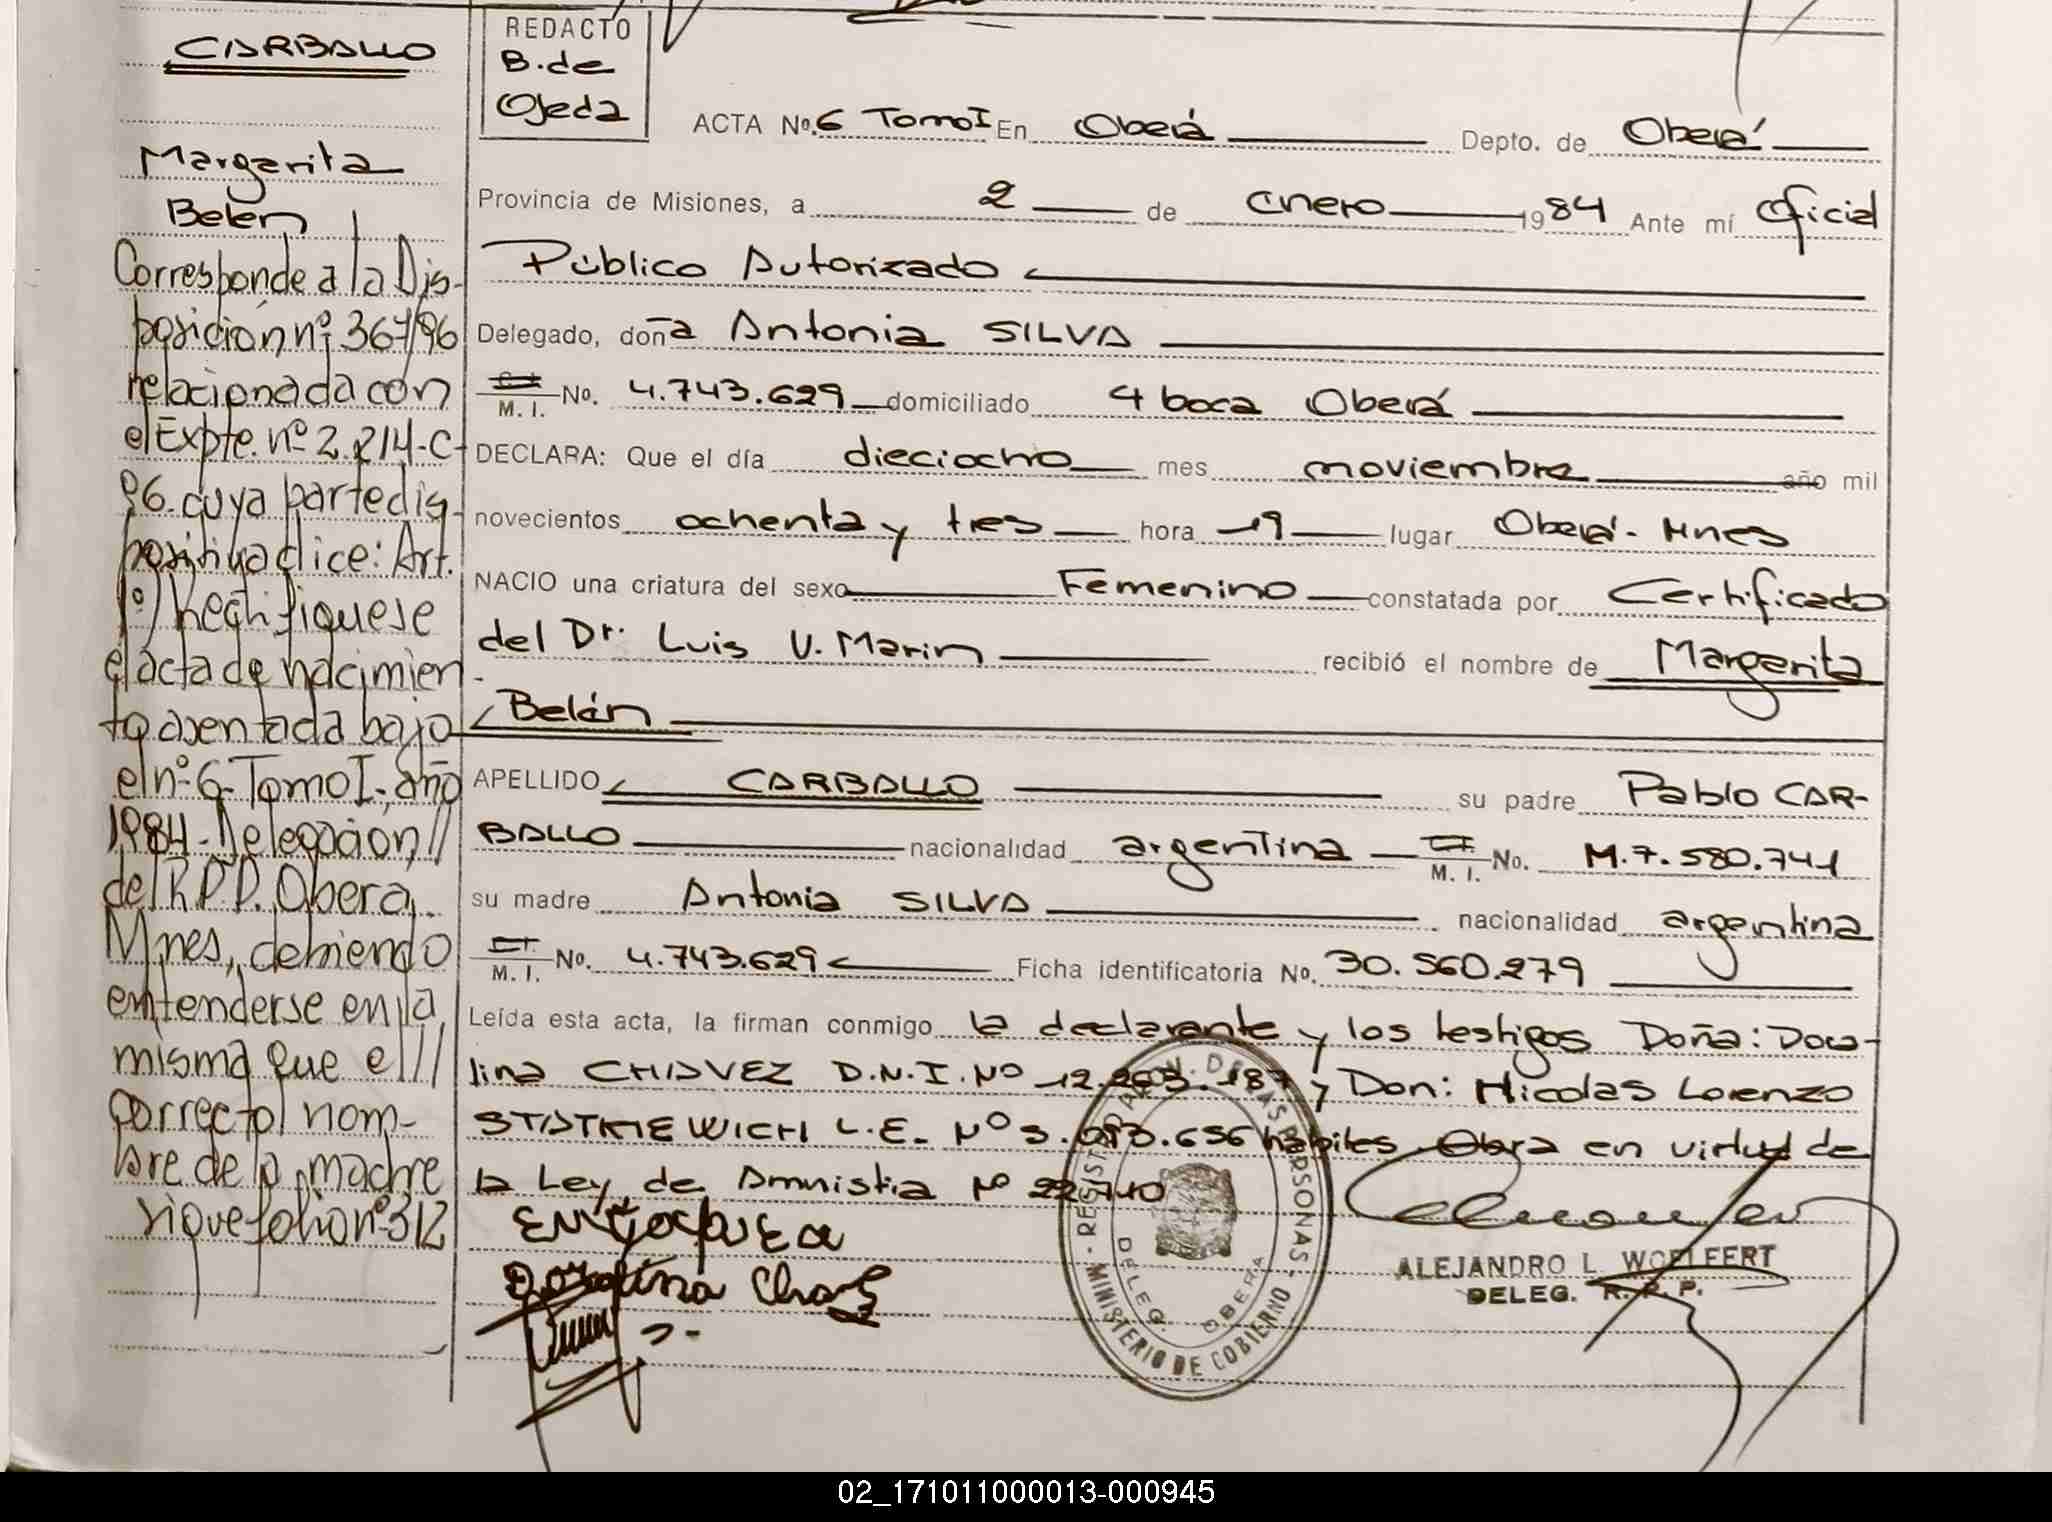 CARBALLO
Margarita
Belen
Corresponde a la Dis-
posición nº 367/96
relacionada con
el Expte. nº 2.214-C-
96. cuya parte dis-
positiva dice: Art.
1º) Rectifiquese
el acta de nacimien-
to asentada bajo
el nº 6- Tomo I-, año
1984- Delegación//
del R.P.P. Obera,
Mnes, debiendo
entenderse en la
misma que el//
correcto nom-
bre de la madre
sigue folio nº 312
REDACTO
B. de
Ojeda
ACTA No. 6 Tomo I En Oberá Depto. de Oberá
Provincia de Misiones, a 2 de enero 1984 Ante mí Oficial
Público Autorizado
Delegado, doña Antonia SILVA
M. I. No. 4.743.629 domiciliado 4 boca Oberá
DECLARA: Que el día dieciocho mes noviembre año mil
novecientos ochenta y tres hora 19 lugar Oberá- Mnes
NACIO una criatura del sexo Femenino constatada por Certificado
del Dr. Luis V. Marin recibió el nombre de Margarita
Belén
APELLIDO CARBALLO su padre Pablo CAR-
BALLO nacionalidad argentina C.I. M. I. No. M.7.580.741
su madre Antonia SILVA nacionalidad argentina
C.I. M. I. No. 4.743.629 Ficha identificatoria No. 30.560.279
Leída esta acta, la firman conmigo la declarante y los testigos Doña:
lina CHAVEZ D.N.I. Nº 12.263.187 y Don: Nicolas Lorenzo
STATKIEWICH L.E. Nº habiles Obra en virtud de
la Ley de Amnistia Nº
REGIST
PERSONAS
MINISTERIO DE GOBIERNO
DELEG. OBERA
ALEJANDRO L. WOELFERT
DELEG. R. P. P.
02_171011000013-000945